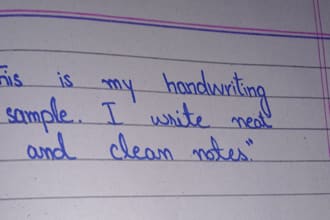 his is my handwriting
sample. I write neat
and clean notes."